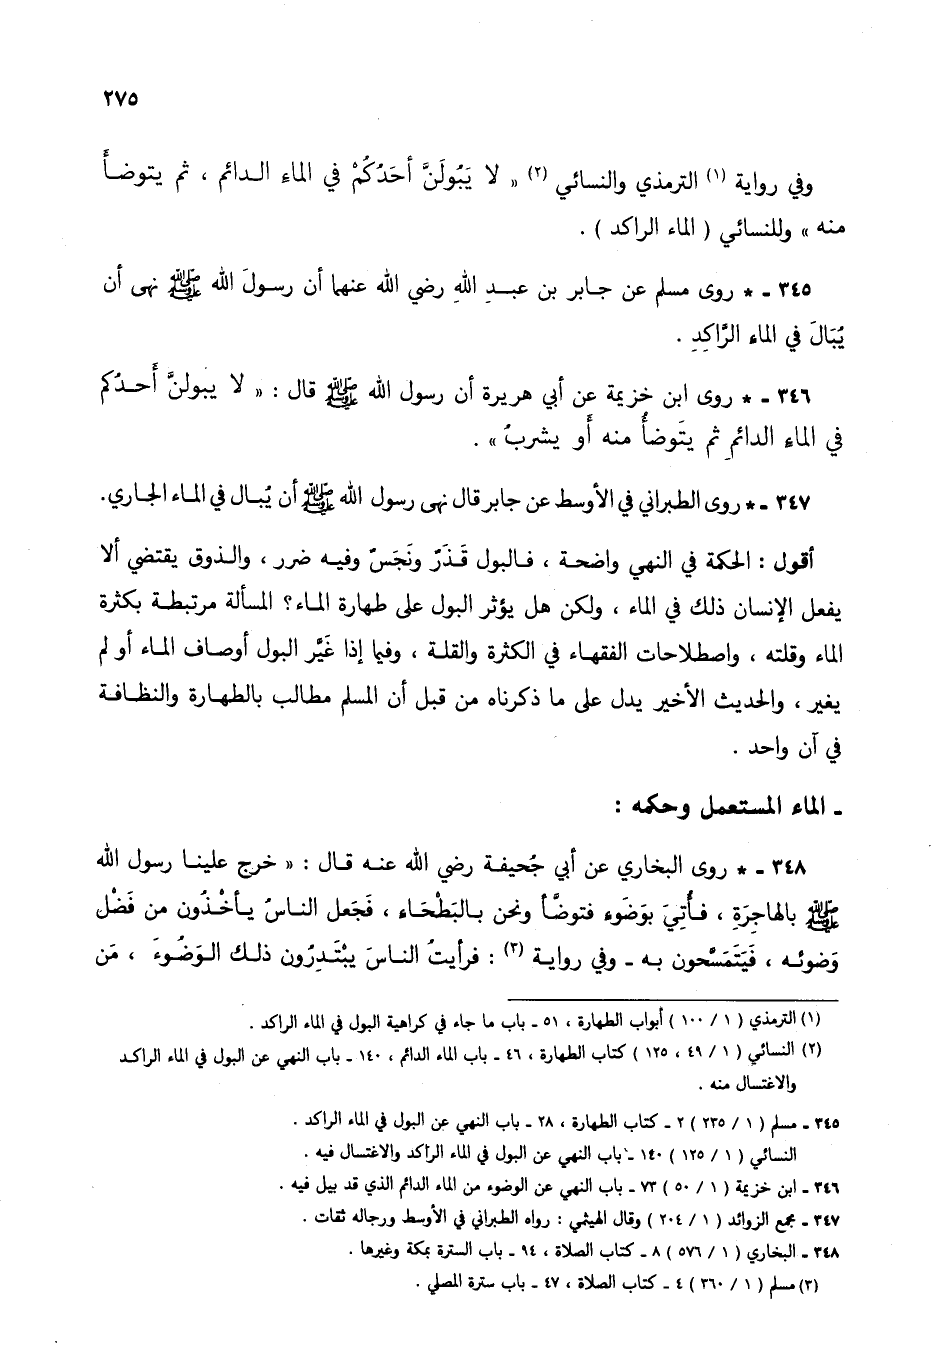 ٢٧٥
وفي رواية (١) الترمذي والنسائي (٢) « لا يَبُولَنَّ أحَدُكُمْ في الماء الـدائم ، ثم يتوضـأَ
منه » وللنسائي ( الماء الراكد ) .
٣٤٥ ـ * روى مسلم عن جـابر بن عبـدِ اللهِ رضي الله عنهما أن رسولَ الله ﷺ نهى أن
يُبَالَ في الماء الرَّاكِدِ .
٣٤٦ ـ * روى ابن خزيمة عن أبي هريرة أن رسول الله ﷺ قال : « لا يبولنَّ أَحـدُكم
في الماءِ الدائمِ ثم يتَوضأُ منه أَو يشربُ » .
٣٤٧ ـ * روى الطبراني في الأوسط عن جابر قال نهى رسول الله ﷺ أن يُبـال في المـاء الجاري.
أقول : الحكمة في النهي واضحـة ، فـالبول قَـذَرٌ ونَجَسٌ وفيـه ضرر ، والـذوق يقتضي ألا
يفعل الإنسان ذلك في الماء ، ولكن هل يؤثر البول على طهارة المـاء؟ المسألة مرتبطـة بكثرة
الماء وقلته ، واصطلاحات الفقهـاء في الكثرة والقلـة ، وفيما إذا غَيَّر البول أوصـاف المـاء أو لم
يغير ، والحديث الأخير يدل على ما ذكرناه من قبل أن المسلم مطالب بالطهارة والنظافـة
في آن واحد .
ـ الماء المستعمل وحكمه :
٣٤٨ ـ * روى البخاري عن أبي جُحيفـة رضي الله عنـه قـال : « خرج علينـا رسول الله
ﷺ بالهاجِرَةِ ، فـأُتِيَ بوَضَوء فتوضَّأ ونحن بـالبَطْحَـاء ، فَجَعل النـاسُ يـأخْـذُون من فَضْل
وَضوئـه ، فَيَتَمَسَّحون بـه ـ وفي روايـة (٣) : فرأيتُ النـاسَ يبْتَدِرُون ذلـك الـوَضُوءَ ، مَن
(١) الترمذي ( ١ / ١٠٠ ) أبواب الطهارة ، ٥١ ـ باب ما جاء في كراهية البول في الماء الراكد .
(٢) النسائي ( ١ / ٤٩ ، ١٢٥ ) كتاب الطهارة ، ٤٦ ـ باب الماء الدائم ، ١٤٠ ـ باب النهي عن البول في الماء الراكـد
والاغتسال منه .
٣٤٥ ـ مسلم ( ١ / ٢٣٥ ) ٢ ـ كتاب الطهارة ، ٢٨ ـ باب النهي عن البول في الماء الراكد .
النسائي ( ١ / ١٢٥ ) ١٤٠ ـ باب النهي عن البول في الماء الراكد والاغتسال فيه .
٣٤٦ ـ ابن خزيمة ( ١ / ٥٠ ) ٧٣ ـ باب النهي عن الوضوء من الماء الدائم الذي قد بيل فيه .
٣٤٧ ـ مجمع الزوائد ( ١ / ٢٠٤ ) وقال الهيثمي : رواه الطبراني في الأوسط ورجاله ثقات .
٣٤٨ ـ البخاري ( ١ / ٥٧٦ ) ٨ ـ كتاب الصلاة ، ٩٤ ـ باب السترة بمكة وغيرها .
(٣) مسلم ( ١ / ٣٦٠ ) ٤ ـ كتاب الصلاة ، ٤٧ ـ باب سترة المصلي .